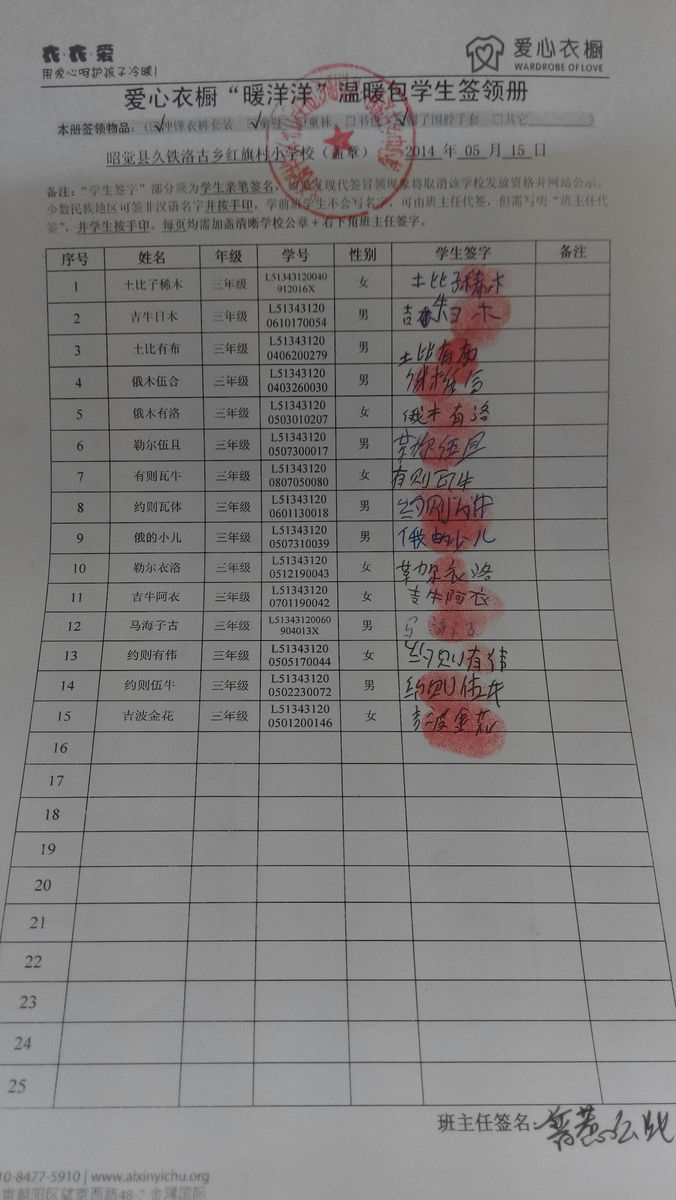 衣·衣·爱
用爱心呵护孩子冷暖!
爱心衣橱
WARDROBE OF LOVE
爱心衣橱“暖洋洋”温暖包学生签领册
本册签领物品：（☑冲锋衣裤套装 ☑童鞋 ☑童袜 □书包 ☑帽子围脖手套 □其它 ）
昭觉县久铁洛古乡红旗村小学校（盖章） 2014 年 05 月 15 日
备注：“学生签字”部分须为学生亲笔签名，如果发现代签冒领现象将取消该学校发放资格并网站公示。
少数民族地区可签非汉语名字并按手印，学前班学生不会写名字，可由班主任代签，但需写明“班主任代
签”，并学生按手印。每页均需加盖清晰学校公章+右下角班主任签字。
序号 姓名 年级 学号 性别 学生签字 备注
1 土比子稀木 三年级 L51343120040912016X 女 土比子稀木
2 吉牛日木 三年级 L513431200610170054 男 吉牛日木
3 土比有布 三年级 L513431200406200279 男 土比有布
4 俄木伍合 三年级 L513431200403260030 男 俄木伍合
5 俄木有洛 三年级 L513431200503010207 女 俄木有洛
6 勒尔伍且 三年级 L513431200507300017 男 勒尔伍且
7 有则瓦牛 三年级 L513431200807050080 女 有则瓦牛
8 约则瓦体 三年级 L513431200601130018 男 约则瓦体
9 俄的小儿 三年级 L513431200507310039 男 俄的小儿
10 勒尔衣洛 三年级 L513431200512190043 女 勒尔衣洛
11 吉牛阿衣 三年级 L513431200701190042 女 吉牛阿衣
12 马海子古 三年级 L51343120060904013X 男 马海子古
13 约则有伟 三年级 L513431200505170044 女 约则有伟
14 约则伍牛 三年级 L513431200502230072 男 约则伍牛
15 吉波金花 三年级 L513431200501200146 女 吉波金花
16
17
18
19
20
21
22
23
24
25
班主任签名:
10-8477-5910 | www.aixinyichu.org
京朝阳区望京西路48-2 金隅国际